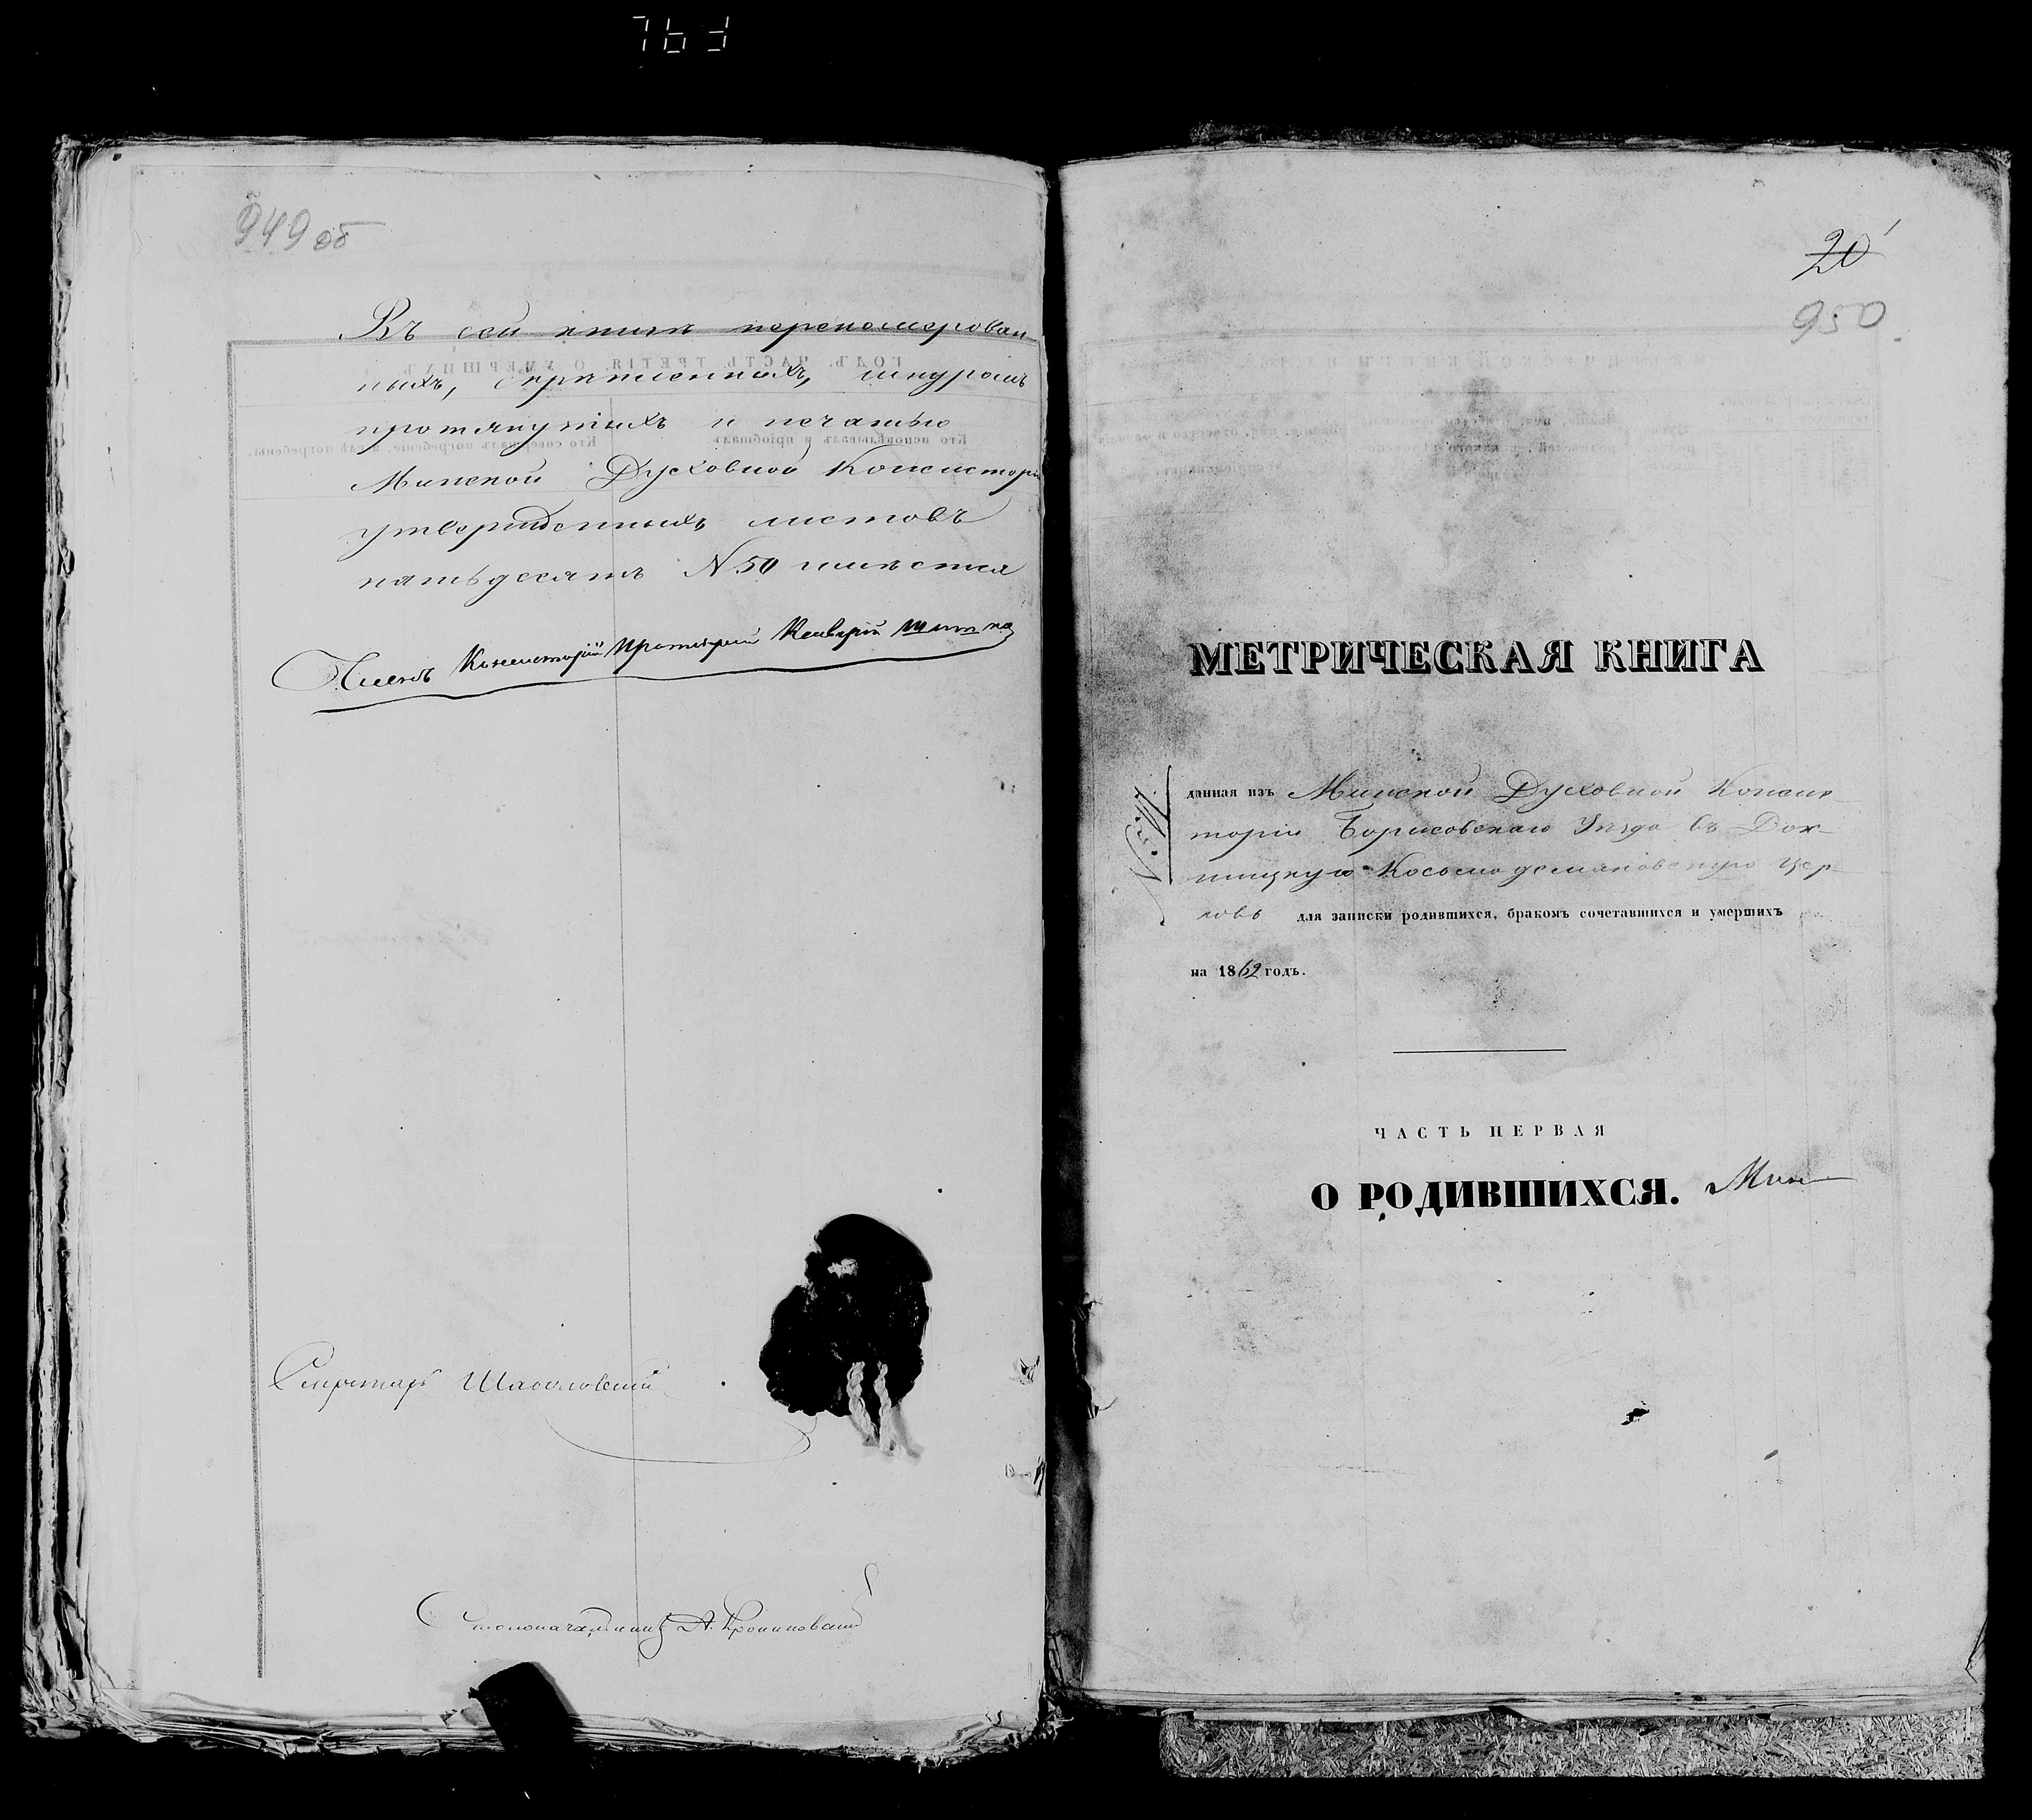 949 об
Въ сей книге перенумерован
ныхъ, скрепленныхъ, шнуромъ
протянутыхъ и печатью
Минской Духовной Консисторіи
утвержденныхъ листовъ
пятьдесятъ N 50 имѣется
Членъ Консисторіи Протоіерей
Секретарь
Столоначальникъ А.
20
950
МЕТРИЧЕСКАЯ КНИГА
данная изъ Минской Духовной Консис-
торіи Борисовскаго Уѣзда въ Док-
шицкую Косьмодемьяновскую цер-
ковь для записки родившихся, бракомъ сочетавшихся и умершихъ
на 1862 годъ.
ЧАСТЬ ПЕРВАЯ
О РОДИВШИХСЯ. Мин